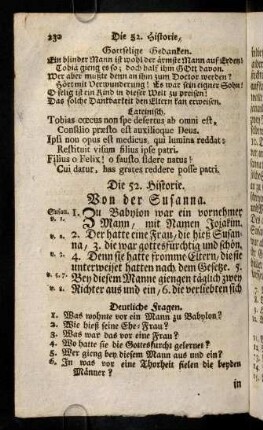 230 Die 52. Historie,
Gottselige Gedanken.
Ein blinder Mann ist wohl der ärmste Mann auf Erden!
Tobiä gieng es so; doch half ihm GOtt davon.
Wer aber mußte denn an ihm zum Doctor werden?
Hört mit Verwunderung! Es war sein eigner Sohn!
O selig ist ein Kind in dieser Welt zu preisen!
Das solche Dankbarkeit den Eltern kan erweisen.
Lateinisch.
Tobias cœcus non spe desertus ab omni est,
Consilio præsto est auxilioque Deus.
Ipsi non opus est medicus, qui lumina reddat:
Restituit visum filius ipse patri.
Filius o Felix! o fausto sidere natus!
Cui datur, has grates reddere posse patri.
Die 52. Historie.
Von der Susanna.
Susan. 1. ZU Babylon war ein vornehmer
v. 1. Mann, mit Namen Jojakim.
v. 2. 2. Der hatte eine Frau, die hieß Susan-
na, 3. die war gottesfürchtig und schön,
v. 3. 4. Denn sie hatte fromme Eltern, die sie
unterweiset hatten nach dem Gesetze. 5.
Bey diesem Manne giengen täglich zween
Richter aus und ein, 6. die verliebten sich
Deutliche Fragen.
1. Was wohnte vor ein Mann zu Babylon?
2. Wie hieß seine Ehe-Frau?
3. Was war das vor eine Frau?
4. Wo hatte sie die Gottesfurcht gelernet?
5. Wer gieng bey diesem Mann aus und ein?
6. In was vor eine Thorheit fielen die beyden
Männer?
in